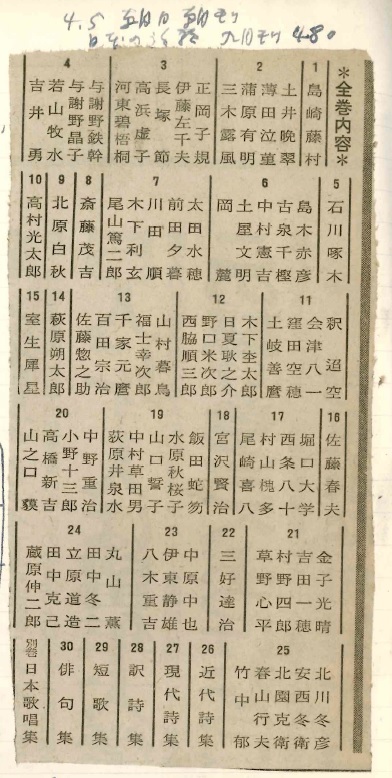 4.5
4.80
＊全巻内容＊
1
島崎藤村
2
土井晩翠
薄田泣菫
蒲原有明
三木露風
3
正岡子規
伊藤左千夫
長塚節
高浜虚子
河東碧梧桐
4
与謝野鉄幹
与謝野晶子
若山牧水
吉井勇
5
石川啄木
6
島木赤彦
古泉千樫
中村憲吉
土屋文明
岡麓
7
太田水穂
前田夕暮
川田順
木下利玄
尾山篤二郎
8
斎藤茂吉
9
北原白秋
10
高村光太郎
11
釈迢空
会津八一
窪田空穂
土岐善麿
12
木下杢太郎
日夏耿之介
野口米次郎
西脇順三郎
13
山村暮鳥
福士幸次郎
千家元麿
百田宗治
佐藤惣之助
14
萩原朔太郎
15
室生犀星
16
佐藤春夫
17
堀口大学
西条八十
村山槐多
尾崎喜八
18
宮沢賢治
19
飯田蛇笏
水原秋桜子
山口誓子
中村草田男
荻原井泉水
20
中野重治
小野十三郎
高橋新吉
山之口貘
21
金子光晴
吉田一穂
村野四郎
草野心平
22
三好達治
23
中原中也
伊東静雄
八木重吉
24
丸山薫
田中冬二
立原道造
田中克己
蔵原伸二郎
25
北川冬彦
安西冬衛
北園克衛
春山行夫
竹中郁
26
近代詩集
27
現代詩集
28
訳詩集
29
短歌集
30
俳句集
別巻
日本歌唱集